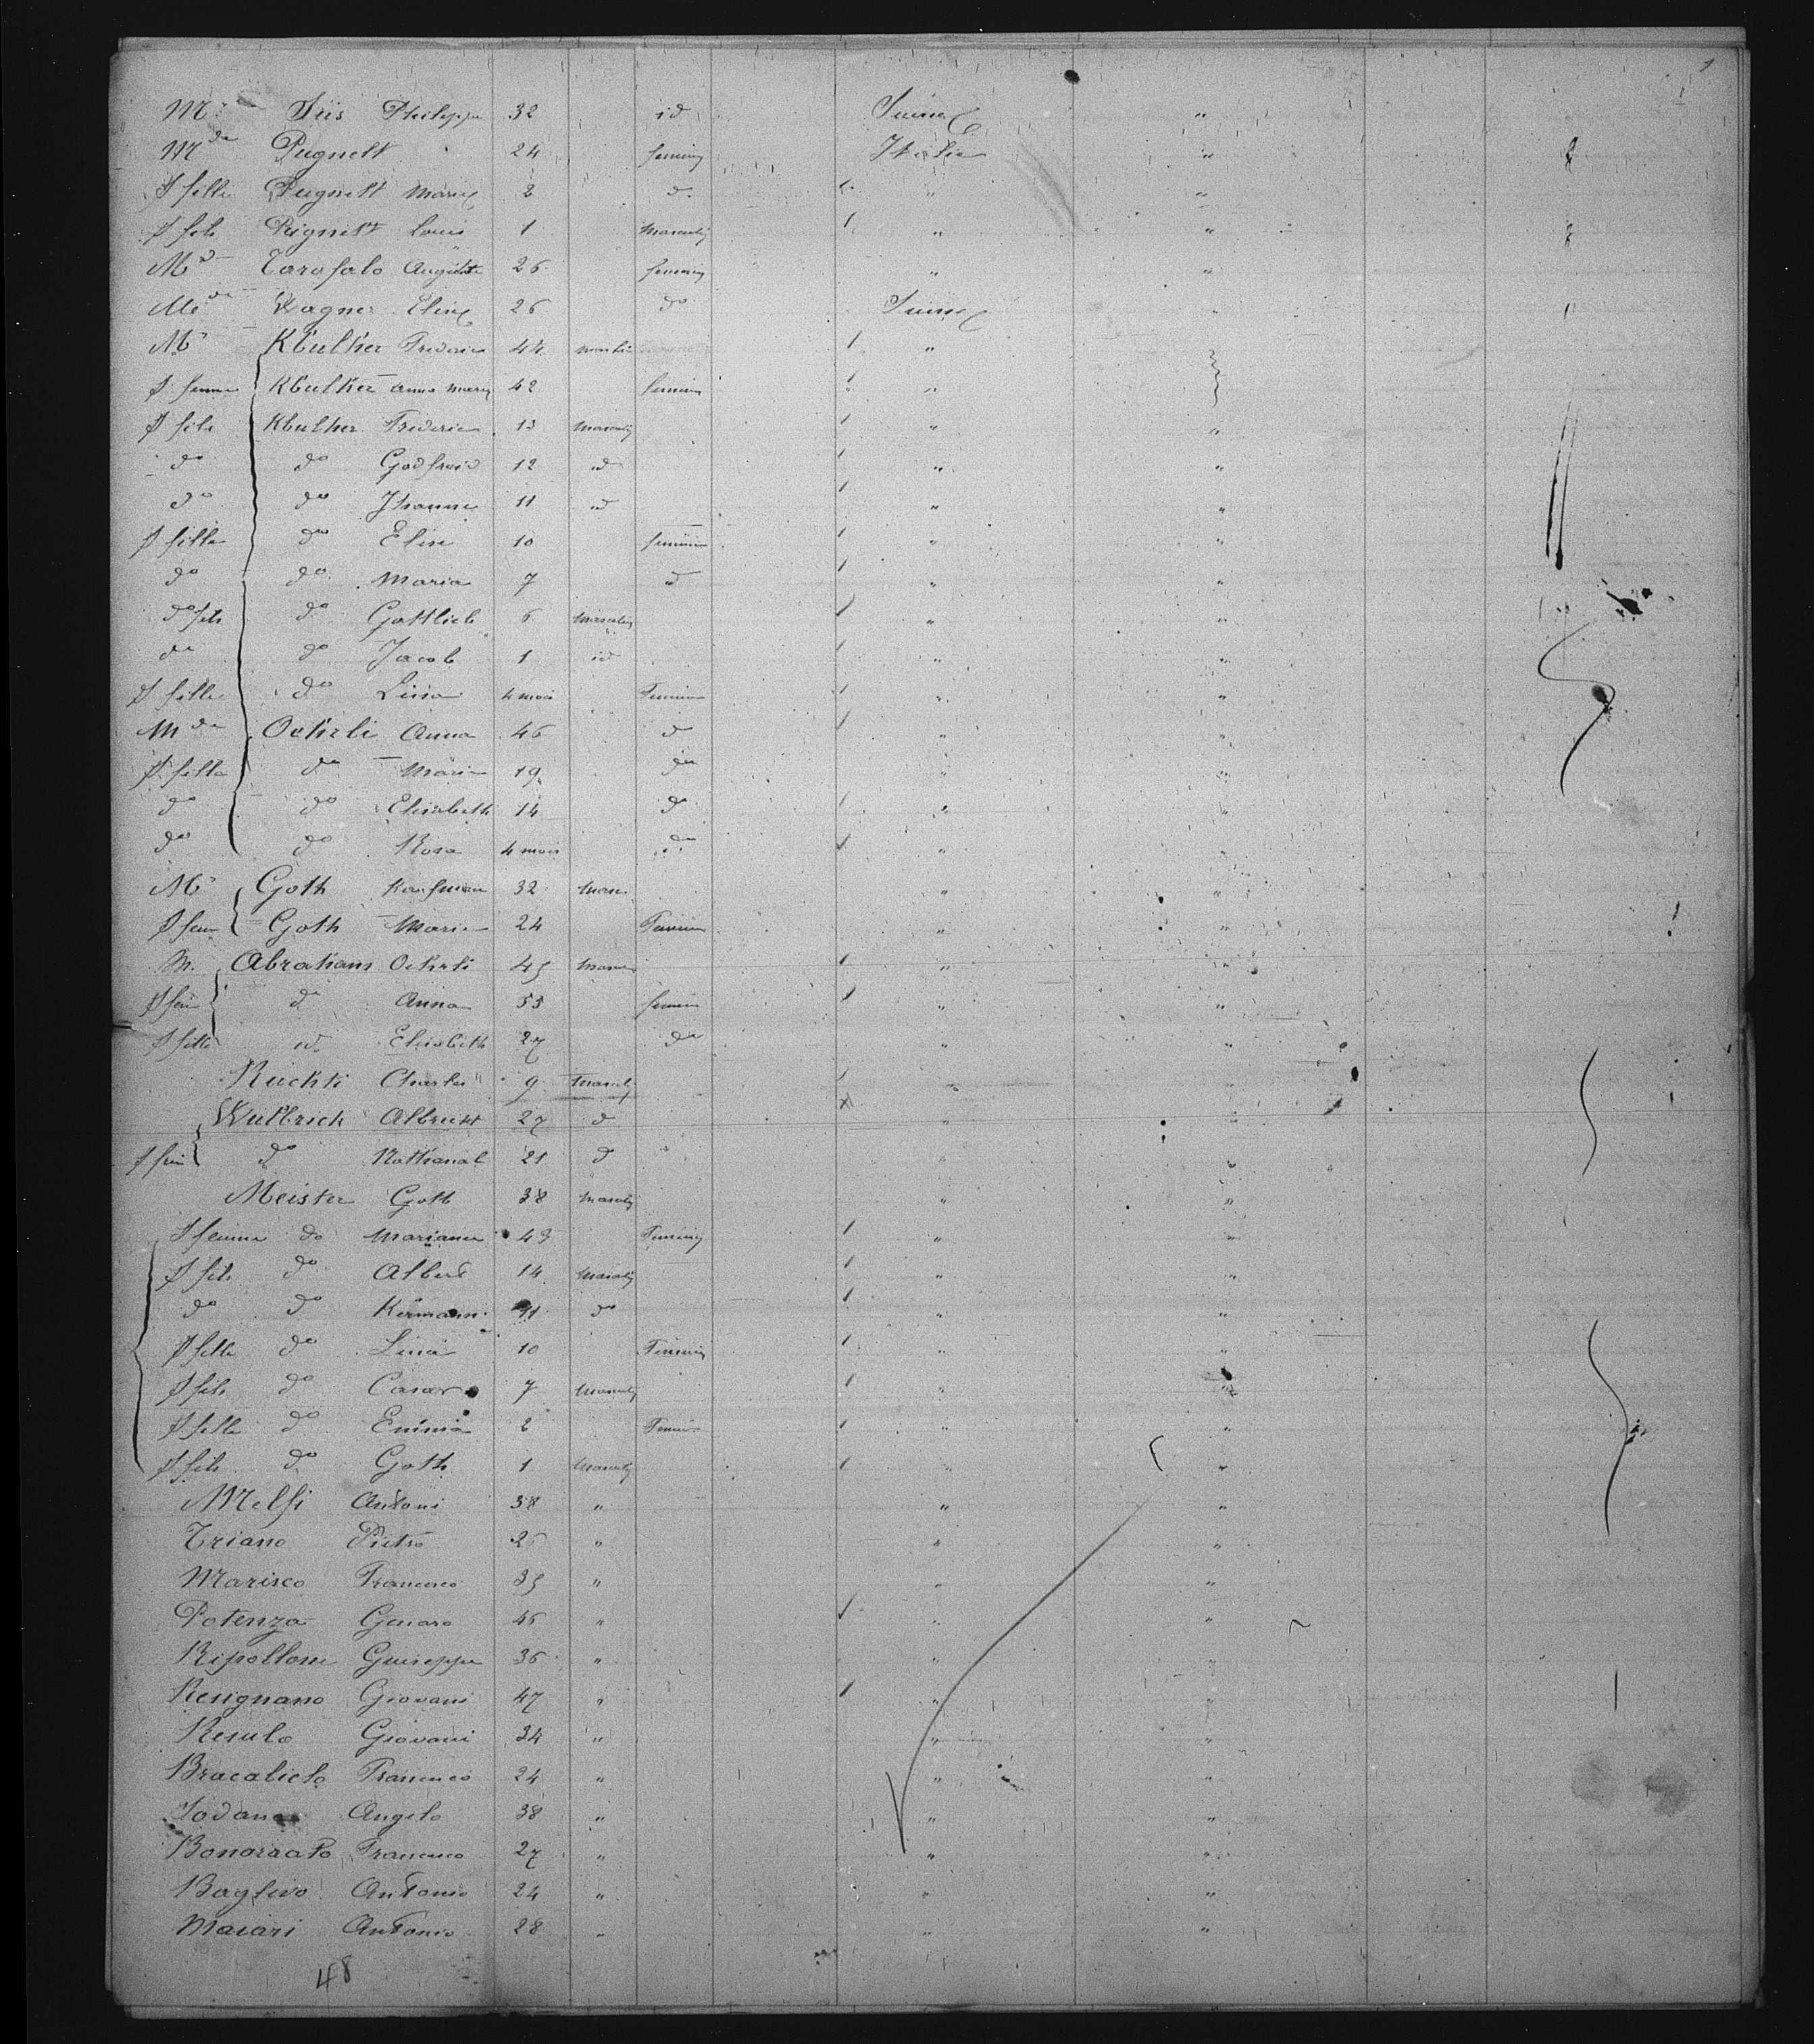 Mr Süs Philippe 32 id Suisse "
Mde Pugnett 24 feminin Italie "
S fille Pugnett Marie 2 do " "
S fils Pugnett Louis 1 Masculin " "
Md Tarofalo Auguste 26 feminin " "
Me Wagner Elise 26 do Suisse "
Mr Kbulher Frederic 44 "
S femme Kbulher Anna Marie 42 feminin " "
S fils Kbulher Frederic 13 Masculin " "
do do Godfreid 12 id " "
do do Jhanne 11 id " "
S fille do Elise 10 feminin " "
do do Maria 7 d " "
do fils do Gottlieb 6 Masculin " "
do do Jacob 1 id " "
S fille do Lina 4 mois Feminin " "
Mde Oehrli Anna 46 d " "
S fille do Marie 19 do " "
do do Elisabeth 14 do " "
do do Rosa 4 mois do " "
Mr Goth Kaufman 32 Masc " "
S fem Goth Marie 24 Feminin " "
M. Abraham Oehrli 45 Mascu " "
S fem d Anna 55 feminin " "
S fille id. Elisabeth 27 do " "
Ruchti Charles 9 Masculin " "
Wulbrich Albrecht 27 d " "
do Nathanal 21 d " "
Meister Gotb 38 Masculin " "
S femme do Marianne 43 Feminin " "
S fils do Albert 14 Masculin " "
do do Hermann 11 do " "
S fille do Lina 10 Feminin " "
S fils do Casar 7 Masculin " "
S fille do Emma 2 Feminin " "
S fils do Goth 1 Masculin " "
Melfi Antoni 38 " " "
Triano Pietro 26 " " "
Marisco Francesco 35 " " "
Potenza Genaro 46 " " "
Ripollone Guiseppe 36 " " "
Resignano Giovani 47 " " "
Resulo Giovani 34 " " "
Bracalielo Francesco 24 " " "
Angelo 38 " " "
Bonorrato Francesco 27 " " "
Baglivo Antonio 24 " " "
Maiari Antonio 28 " " "
48